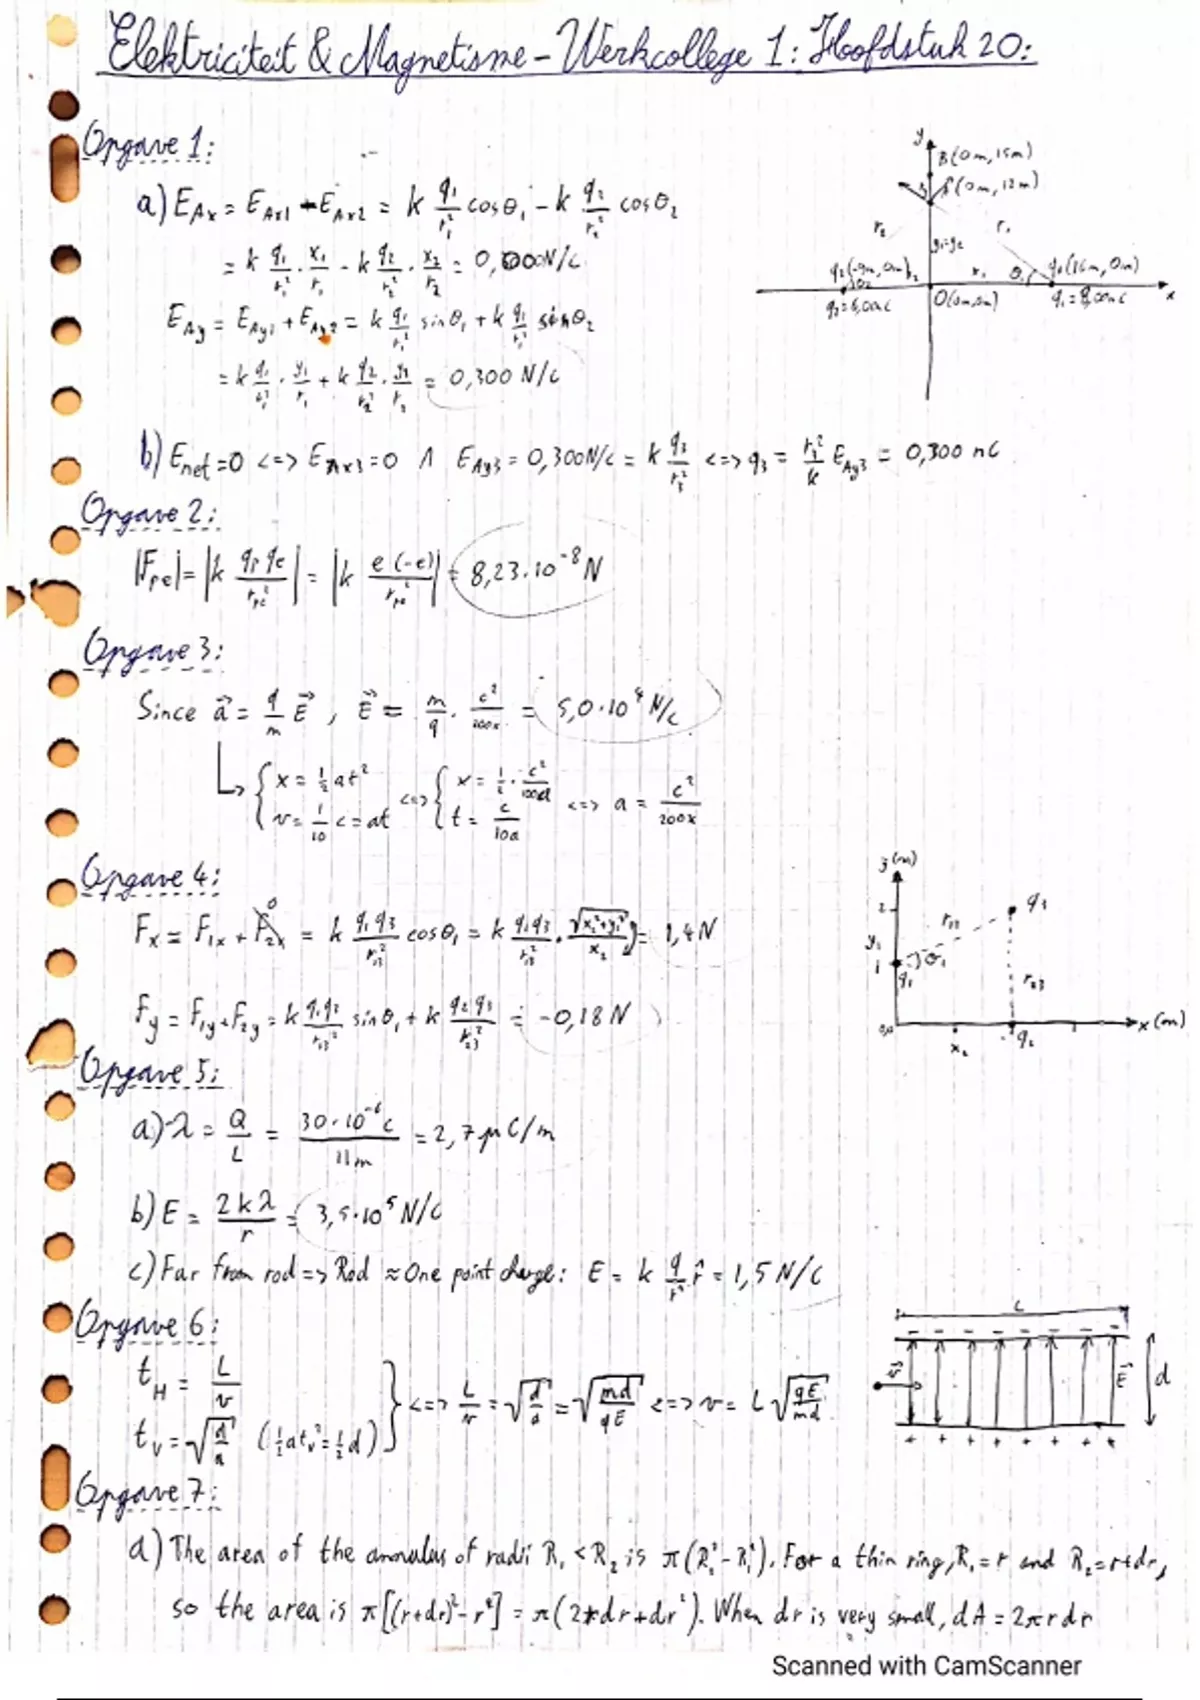 Elektriciteit & Magnetisme - Werkcollege 1: Hoofdstuk 20:
Opgave 1:
a) E_Ax = E_Ax1 + E_Ax2 = k q₁/r₁² cosθ₁ - k q₂/r₂² cosθ₂
= k q₁/r₁² · x₁/r₁ - k q₂/r₂² · x₂/r₂ = 0,000N/C
E_Ay = E_Ay1 + E_Ay2 = k q₁/r₁² sinθ₁ + k q₁/r₁² sinθ₂
= k q₁/r₁² · y₁/r₁ + k q₂/r₂² · y₂/r₂ = 0,300 N/C
y
B(0m, 15m)
(0m, 12m)
r₂
r₁
y₁=y₂
q₂(-9m, 0m)
x₁
θ₁
q₁(16m, 0m)
x
q₂=6,00nC
O(0m,0m)
q₁=8,00nC
b) E_net=0 <=> E_Ax3=0 ∧ E_Ay3 = 0,300N/C = k q₃/r₃² <=> q₃ = r₃²/k E_Ay3 = 0,300 nC
Opgave 2:
|F_pe| = |k q_p q_e/r_pe²| = |k e(-e)/r_pe²| = 8,23·10⁻⁸ N
Opgave 3:
Since a⃗ = q/m E⃗, E⃗ = m/q · c²/200x = 5,0·10⁴ N/C
{x = ½at² <=> {x = ½ · c²/100a <=> a = c²/200x
v = 1/10 c = at t = c/10a
Opgave 4:
F_x = F_1x + F_2x 0 = k q₁q₃/r₁₃² cosθ₁ = k q₁q₃/r₁₃² · √(x₁²+y₁²)/x₂ = 1,4N
F_y = F_1y + F_2y = k q₁q₃/r₁₃² sinθ₁ + k q₂q₃/r₂₃² = -0,18N
y(m)
2
r₁₃
q₃
y₁
1
θ₁
q₁
r₂₃
0,0
x₂
q₂
x(m)
Opgave 5:
a) λ = Q/L = 30·10⁻⁶C/11m = 2,7 μC/m
b) E = 2kλ/r = 3,5·10⁵ N/C
c) Far from rod => Rod ≈ One point charge: E = k q/r² r̂ = 1,5 N/C
Opgave 6:
t_H = L/v
t_v = √(d/a) (½at_v² = ½d)
} <=> L/v = √(d/a) = √(md/qE) <=> v = L√(qE/md)
L
- - - - - - - -
v⃗
E⃗
d
+ + + + + + + +
Opgave 7:
a) The area of the annulus of radii R₁ < R₂ is π(R₂²-R₁²). For a thin ring, R₁=r and R₂=r+dr,
so the area is π[(r+dr)²-r²] = π(2rdr+dr²). When dr is very small, dA = 2πrdr
Scanned with CamScanner